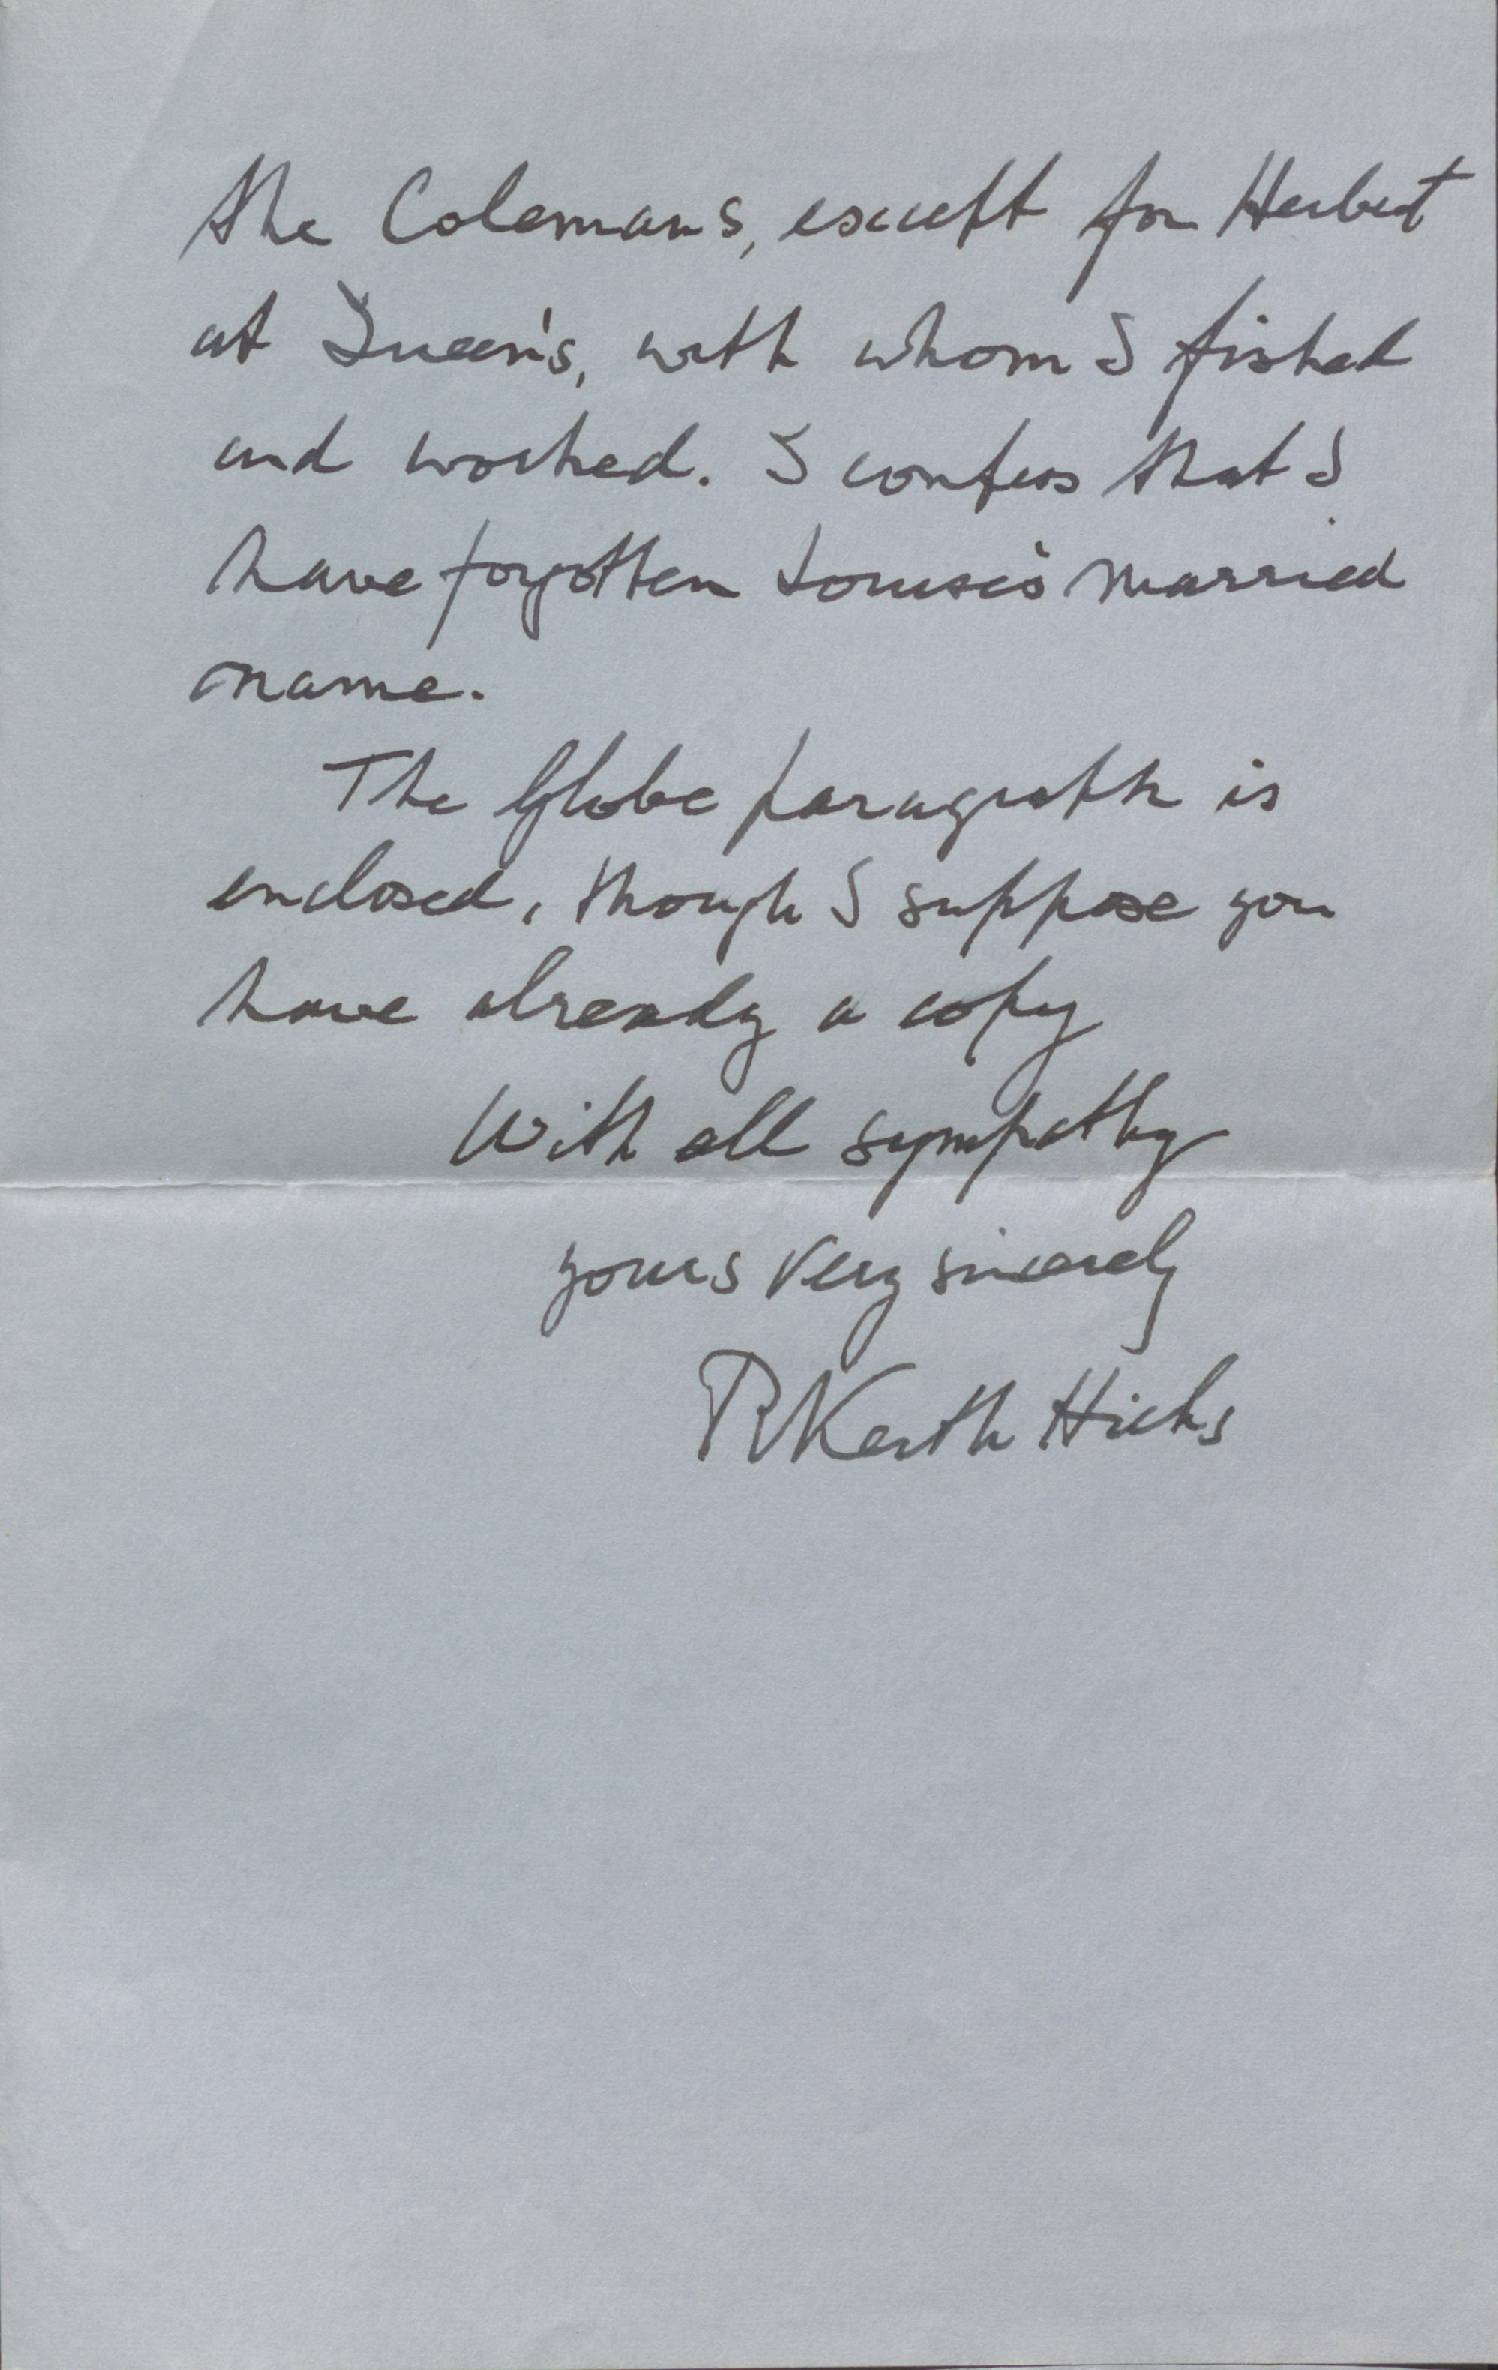 the Colemans, except for Herbert
at Queen's, with whom I fished
and worked. I confess that I
have forgotten Louise's married
name.
The Globe paragraph is
enclosed, though I suppose you
have already a copy
With all sympathy
yours very sincerely
R Keith Hicks